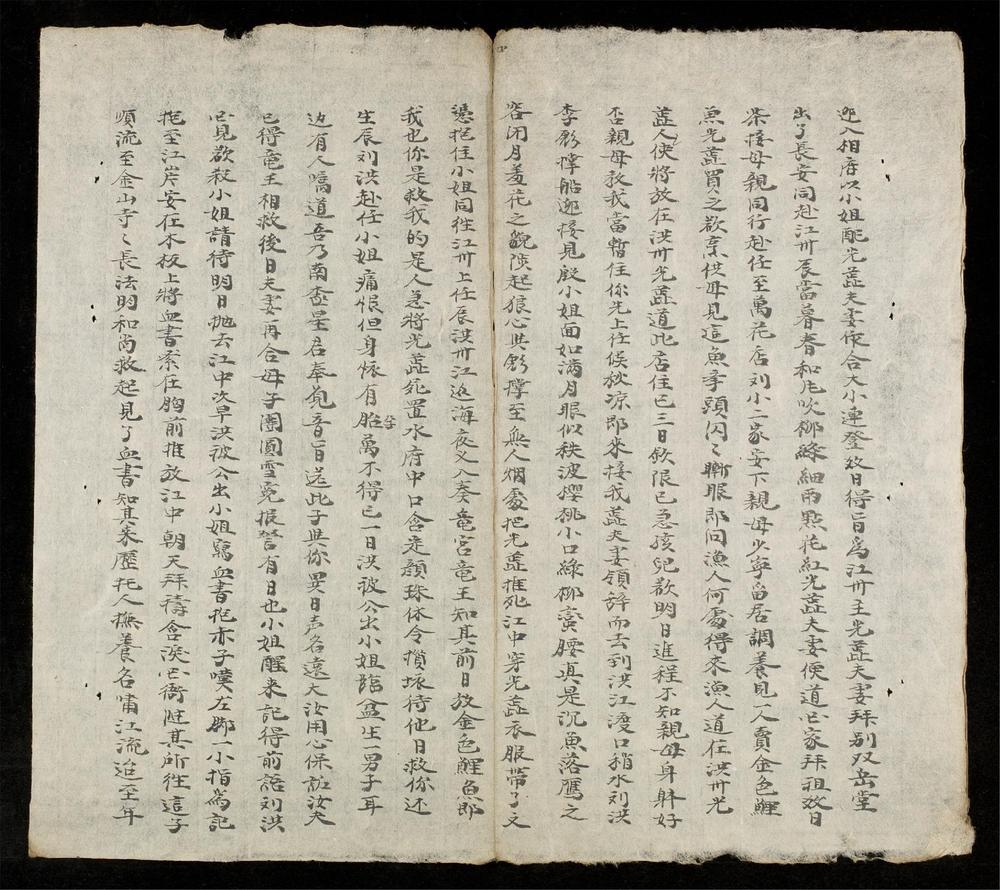 迎入相府以小姐配光蕋夫妻作合大小連登致日得旨爲江州主光蕋夫妻拜别双岳堂
出了長安同赴江州辰當暮春和花吹柳綠細雨點花紅光蕋夫妻便道囬家拜祖致日
柴接母親同行赴任至萬花店刘小二家安下親母少寧畱居調養見一人賣金色鯉
魚光蕋買之欲烹供母見這魚幸頭閃〻斬眼即问漁人何處得來漁人道在洪州光
蕋人使將放在洪州光蕋道此店住已三日欽限已急孩兒欲明日進程不知親母身躰好
否親母教我當暫住你先上任候秋凉即來接我蕋夫妻領辞而去到洪江渡口稍水刘洪
李彪撑船迎接見殷小姐面如满月眼似秩波櫻桃小口綠柳蛮腰真是沉魚落鴈之
容闭月羞花之貌陡起狼心共彪撑至無人烟處把光蕋推死江中穿光蕋衣服帶了文
憑抱住小姐同往江州上任辰洪州江巡海夜叉入奏竜宮竜王知其前日放金色鯉魚即
我也你是救我的是人急將光蕋死置水府中口含定顔珠休令損壊待他日救你还
生辰刘洪赴任小姐痛恨但身怀有胎兮萬不得已一日洪被公出小姐臨盆生一男子耳
边有人嘱道吾乃南極星君奉覌音旨送此子與你異日声名遠大汝用心保護汝夫
已得竜王相救後日夫妻再合母子團圓雪寃报讐有日也小姐醒来記得前語刘洪
囬見欲殺小姐請待明日抛去江中次早洪被公出小姐寫血書抱赤子嘆左脚一小指爲記
抱至江岸安在木板上將血書索在胸前推放江中朝天拜祷含淚囬衙任其所往這子
順流至金山寺〻長法明和尚救起見了血書知其來歷托人撫養名嘯江流迨至年